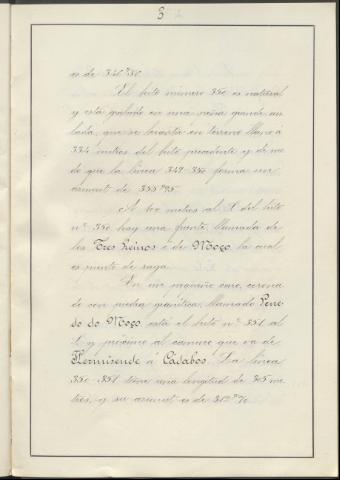 3
El hito número 350 es natural
y está grabado en una peña grande ais
lada, que se levanta en terreno llano á
334 metros del hito precedente y de mo
do que la línea 349-350 forma un
azimut de
A 100 metros al del hito
nº 350 hay una fuente, llamada de
los Tres Reinos ó de Mogo, la cual
es punto de raya.
En un pequeño cerro, cerca
de con piedra gigántica, llamado Pene
do do Mogo, está el hito nº 351 al
y próximo al camino que va de
Hermisende á Cádabos. La línea
350-351 tiene una longitud de 305 me
tros, y su azimut es de